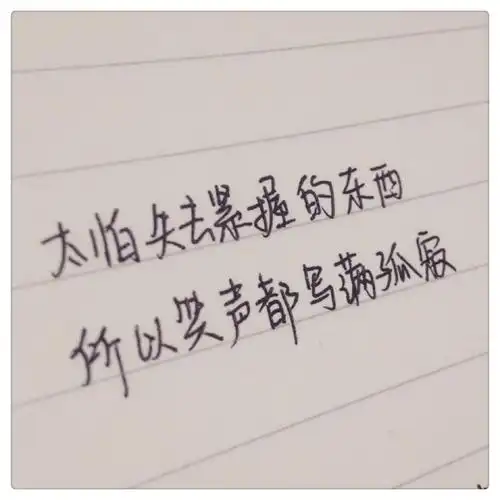 太怕失去紧握的东西
所以笑声都写满孤寂